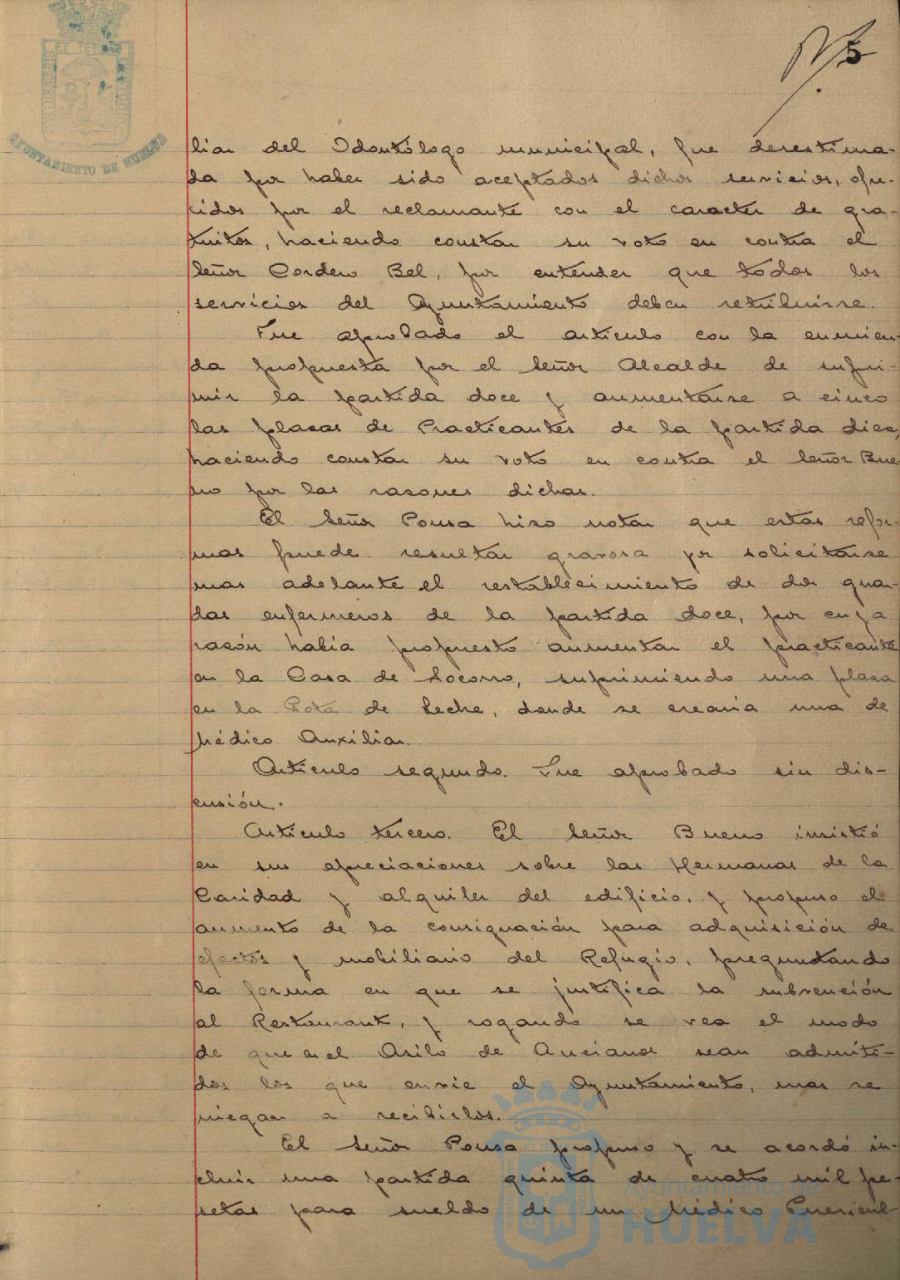 5
AYUNTAMIENTO DE HUELVA
liar del Odontólogo municipal, fue desestima-
da por haber sido aceptados dichos servicios, ofre-
cidos por el reclamante con el caracter de gra-
tuitos, haciendo constar su voto en contra el
Señor Cordero Bel, por entender que todos los
servicios del Ayuntamiento deben retribuirse.
Fue aprobado el artículo con la enmien-
da propuesta por el Señor Alcalde de supri-
mir la partida doce y aumentarse a cinco
las plazas de Practicantes de la partida diez,
haciendo constar su voto en contra el Señor Bue-
no por las razones dichas.
El Señor Pousa hizo notar que estas refor-
mas puede resultar gravosa pr solicitarse
mas adelante el restablecimiento de dos guar-
das enfermeros de la partida doce, por cuya
razón había propuesto aumentar el practicante
en la Casa de Socorro, suprimiendo una plaza
en la Gota de Leche, donde se crearía una de
Médico Auxiliar.
Artículo segundo. Fue aprobado sin dis-
cusión.
Artículo tercero. El Señor Bueno insistió
en sus apreciaciones sobre las Hermanas de la
Caridad y alquiler del edificio, y propuso el
aumento de la consignación para adquisición de
efectos y mobiliario del Refugio, preguntando
la forma en que se justifica la subvención
al Restaurant, y rogando se vea el modo
de que en el Asilo de Ancianos sean admiti-
dos los que envie el Ayuntamiento, mas se
niegan a recibirlos.
El Señor Pousa propuso y se acordó in-
cluir una partida quinta de cuatro mil pe-
setas para sueldo de un Médico Puericul-
Ayuntamiento de
HUELVA